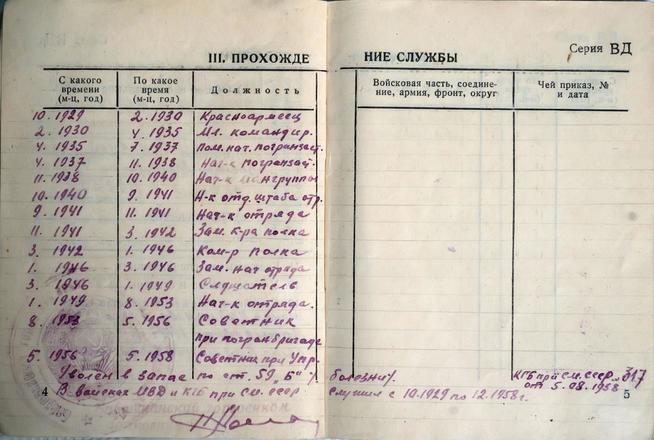 III. ПРОХОЖДЕ НИЕ СЛУЖБЫ
Серия ВД
С какого времени (м-ц, год) По какое время (м-ц, год) Должность Войсковая часть, соедине-
ние, армия, фронт, округ Чей приказ, № и дата
10.1929 2.1930 Красноармеец
2.1930 4.1935 Мл. командир.
4.1935 7.1937 Пом. нач. погранзаст.
4.1937 11.1938 Нач-к погранзаст.
11.1938 10.1940 Нач-к мангруппы
10.1940 9.1941 Н-к отд. штаба отр.
9.1941 11.1941 Нач-к отряда
11.1941 3.1942 Зам. к-ра полка
3.1942 1.1946 Ком-р полка
1.1946 3.1946 Зам. нач отряда
3.1946 1.1949 Слушатель
1.1949 8.1953 Нач-к отряда.
8.1953 5.1956 Советник
при погранбригаде
5.1956 5.1958 Советник при Упр.
Уволен в запас по ст. 59 „Б“ болезни КГБ при См. ссср №317
от 5.08.1958
В войсках МВД и КГБ при См. ссср служил с 10.1929 по 12.1958г.
4
5